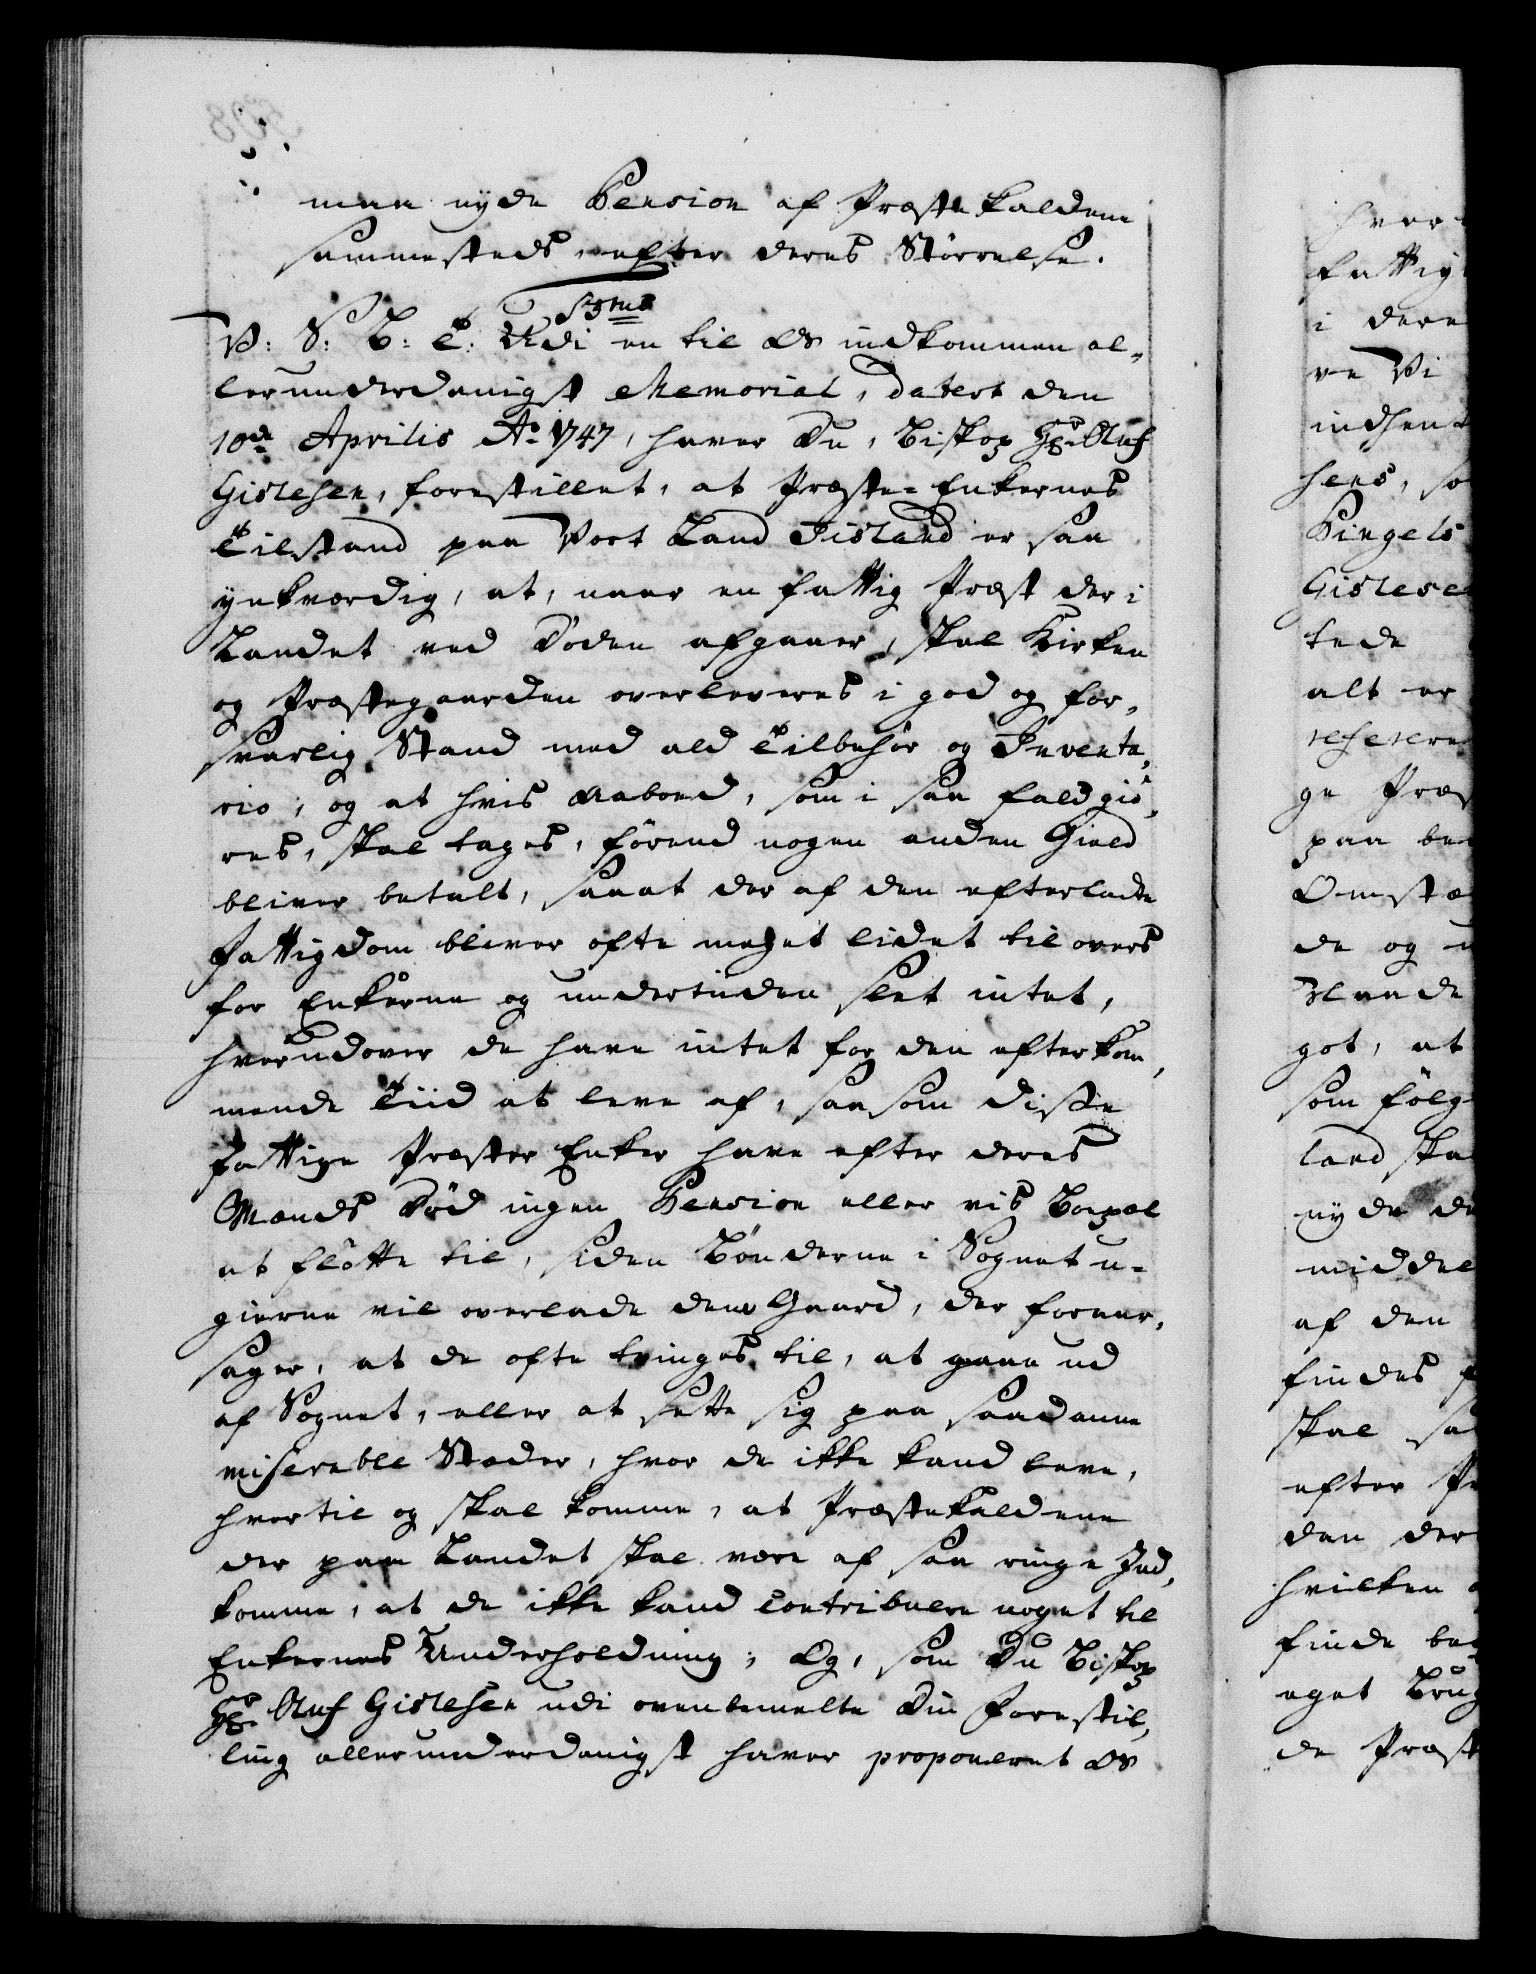 maa nyde Pension af Præste Kaldene
sammesteds, efter deres Størrelse.
V: S: B: T: Udi en til Os indkommen al-
lerunderdanigst Memorial, datert den
10de Aprilis Ao 1747, haver Du, Biskop Hr. Oluf
Gislesen, forestillet, at Præste-Enkernes
Tilstand paa Vort Land Iisland er saa
ynkværdig, at, naar en fattig Præst der i
Landet ved Døden afgaaer, skal Kirken
og Præstegaarden overleveres i god og for-
svarlig Stand med ald Tilbehør og Inventa-
rio, og at hvis Aabood, som i saa fald giø-
res, skal tages, førend nogen anden Gield
bliver betalt, saaat der af den efterladte
Fattigdom bliver ofte meget lidet til overs
for Enkerne og undertiden slet intet,
hvorudover de have intet for den efterkom-
mende Tiid at leve af, saasom disse
fattige Præster Enker have efter deres
Mænds Død ingen Pension eller vis Bopæl
at fløtte til, siden Bønderne i Sognet u-
gierne vil overlade dem Gaard, der foraar-
sager, at de ofte tvinges til, at gaae ud
af Sognet, eller at sette sig paa saadanne
miserable Stæder, hvor de ikke kand leve,
hvortil og skal komme, at Præstekaldene
der paa Landet skal være af saa ringe Ind-
komme, at de ikke kand contribuere noget til
Enkernes Underholdning; Og, som Du Biskop
Hr. Oluf Gislesen udi ovenbemelte Din Forestil-
ling allerunderdanigst haver proponeret Os
fattig
i dere
ve Vi
indhent
hens, so
Pingels
Gislese
tede
alt er
ge Præs
paa be
Omstæ
de og u
got, at
som følg
land ska
nyde de
middel
af den
findes
skal sa
efter Pr
den der
hvilken
finde be
eget Brug
de Præst